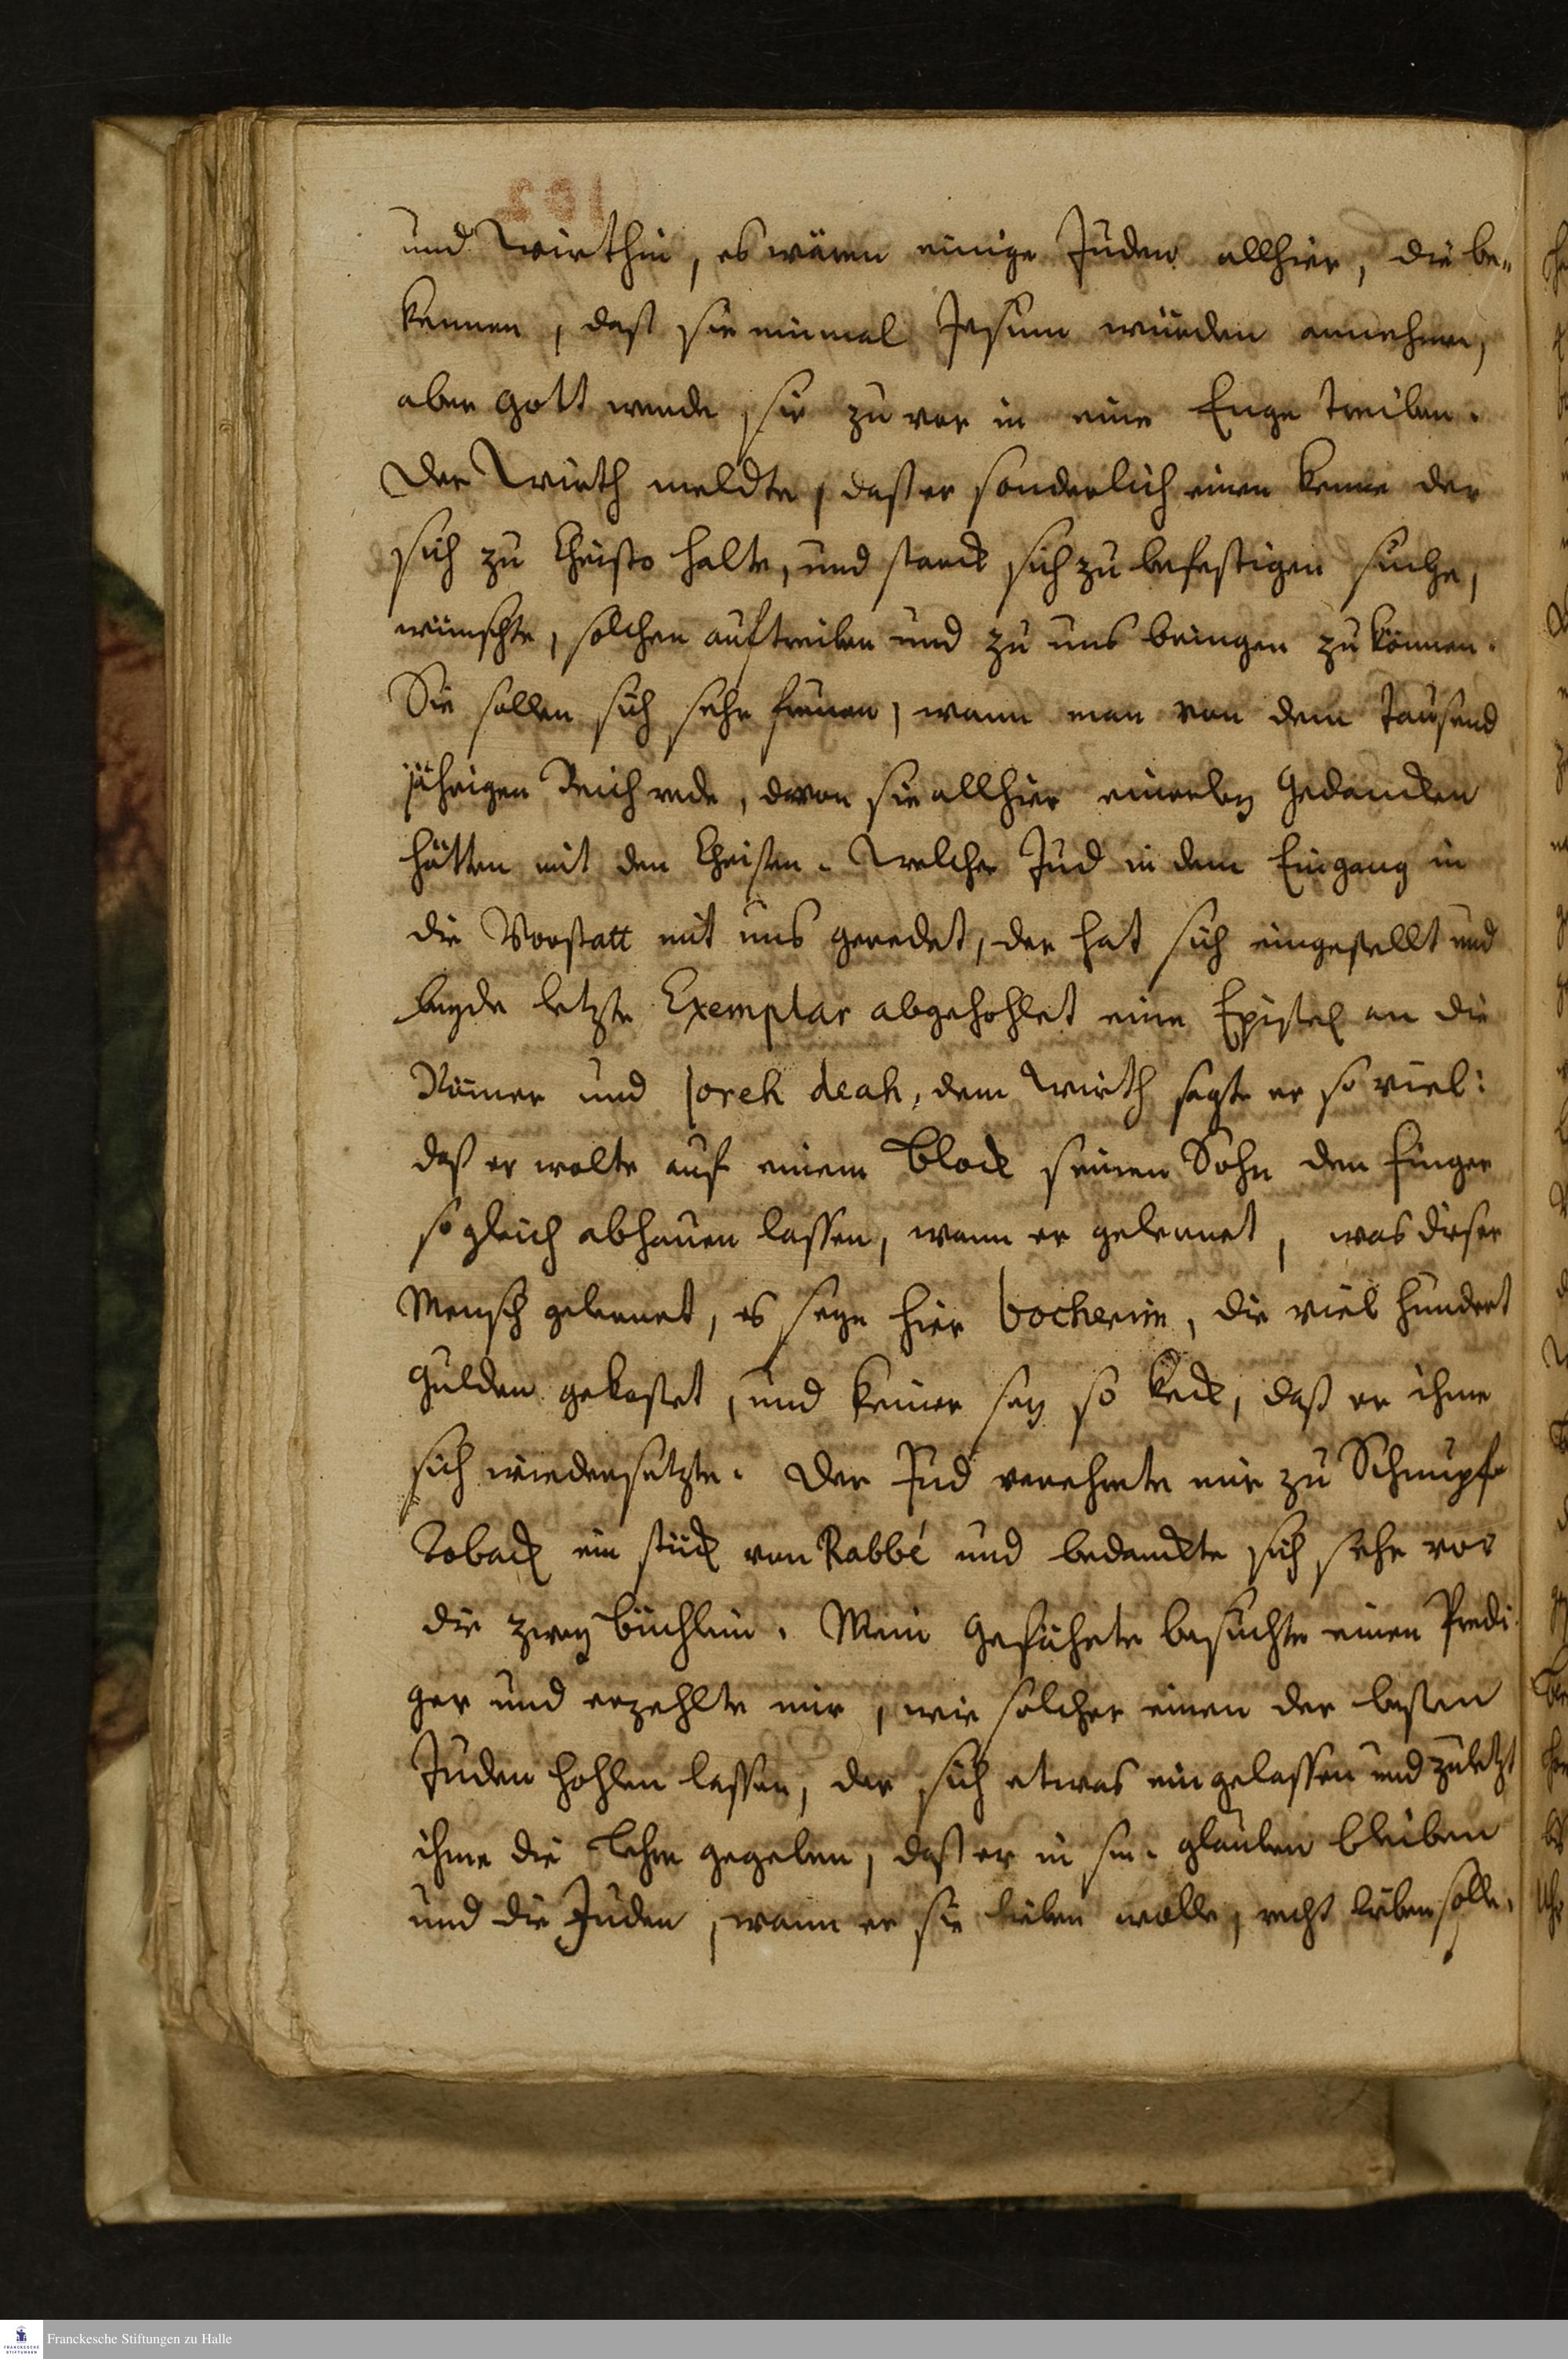 und Wirthin, es wären einige Juden allhier, die be„
kennen, daß sie einmal Jesum würden annehmen,
aber Gott werde sie zu vor in eine Enge treiben.
Der Wirth meldte, daß er sonderlich einen kenne der
sich zu Christo halte, und starck sich zu befestigen suche,
wünschte, solchen auftreiben und zu uns bringen zu können.
Sie sollen sich sehr freuen, wann man von dem Tausend
jährigen Reich rede, davon sie allhier einerley Gedancken
hätten mit den Christen. Welcher Jud in dem Eingang in
die Vorstatt mit uns geredet, der hat sich eingestellt und
beyde letzte Exemplar abgehohlet eine Epistel an die
Römer und Joreh deah, dem Wirth sagte er so viel:
daß er wolte auf einem Block seinen Sohn den Finger
so gleich abhauen lassen, wann er gelernet, was dieser
Mensch gelernet, es seye hier bocherim, die viel hundert
Gulden gekostet, und keiner sey so keck, daß er ihme
sich wiedersetzte. Der Jud verehrte mir zu Schnupf
Toback ein stück von Rabbé und bedanckte sich sehr vor
die zwey Büchlein. Mein Gefährte besuchte einen Predi
ger und erzehlte mir, wie solcher einen der besten
Juden hohlen lassen, der sich etwas eingelassen und zuletzt
ihme die Lehre gegeben, daß er in sm. glauben bleiben
und die Juden, wann er sie lieben wolle, recht lieben solle.
Franckesche Stiftungen zu Halle